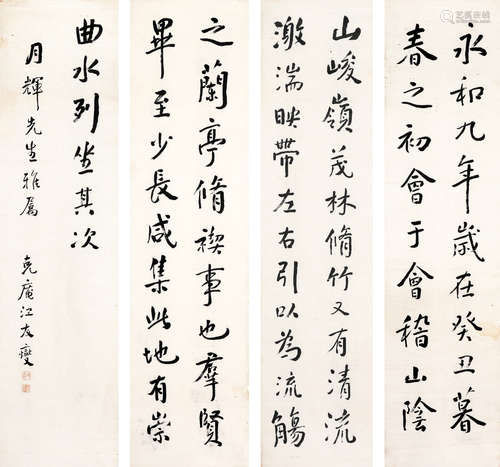 永和九年歲在癸丑暮
春之初會于會稽山陰
山峻嶺茂林脩竹又有清流
激湍映帶左右引以為流觴
之蘭亭脩禊事也羣賢
畢至少長咸集此地有崇
曲水列坐其次
月輝先生雅屬
克庵江友燮